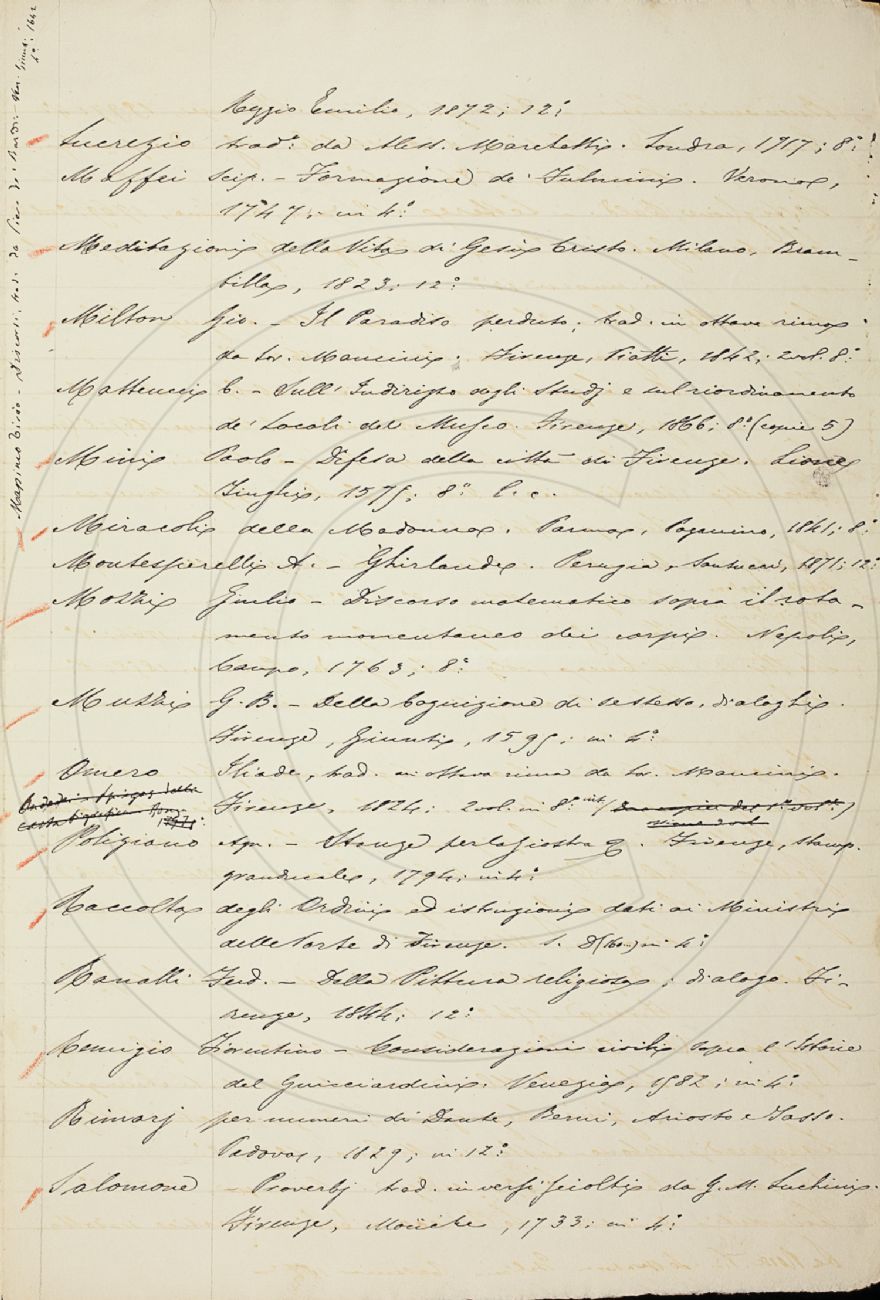 Massimo Tirio - Discorsi, trad. da Piero de' Bardi. Ven. Giunti
4°: 1642
Reggio Emilia, 1872; 12°
Lucrezio trad: da Aless. Marchetti. Londra, 1717; 8°
Maffei Scip. - Formazione de' Fulmini. Verona,
1747; in 4°
Meditazioni della Vita di Gesù Cristo. Milano, Bram-
billa, 1823; 12°
Milton Gio. - Il Paradiso perduto; trad. in ottava rima
da Lor. Mancini. Firenze, Piatti, 1842; 2 vol. 8°
Matteucci C. - Sull' Indirizzo degli Studj e sul riordinamento
de' Locali del Museo. Firenze, 1866; 8° (copie 5)
Mini Paolo - Difesa della città di Firenze. Lione
1575; 8°
Miracoli della Madonna. Parma, Paganino, 1841; 8°
Montesperelli A. - Ghirlanda. Perugia, Santucci, 1871; 12°
Mozzi Giulio - Discorso matematico sopra il rota-
mento momentaneo dei corpi. Napoli,
Campo, 1763; 8°
Muzzi G. B. - Della Cognizione di se stesso, dialoghi.
Firenze, Giunti, 1595; in 4°
Omero Iliade, trad. in ottava rima da Lor. Mancini.
Firenze, 1824; 2 vol. in 8°
Poliziano Agn. - Stanze per la Giostra &. Firenze, Stamp.
granducale, 1794; in 4°
Raccolta degli Ordini ed istruzioni dati ai Ministri
delle Porte di Firenze. in 4°
Ranalli Ferd. - Della Pittura religiosa; dialogo. Fi-
renze, 1844; 12°
Remigio Fiorentino - Considerazioni civili sopra l'Istorie
del Guicciardini. Venezia, 1582; in 4°
Rimarj per numeri di Dante, Berni, Ariosto e Tasso.
Padova, 1829; in 12°
Salomone - Proverbj trad. in versi sciolti da G. M. Luchini.
Firenze, Moücke, 1733; in 4°